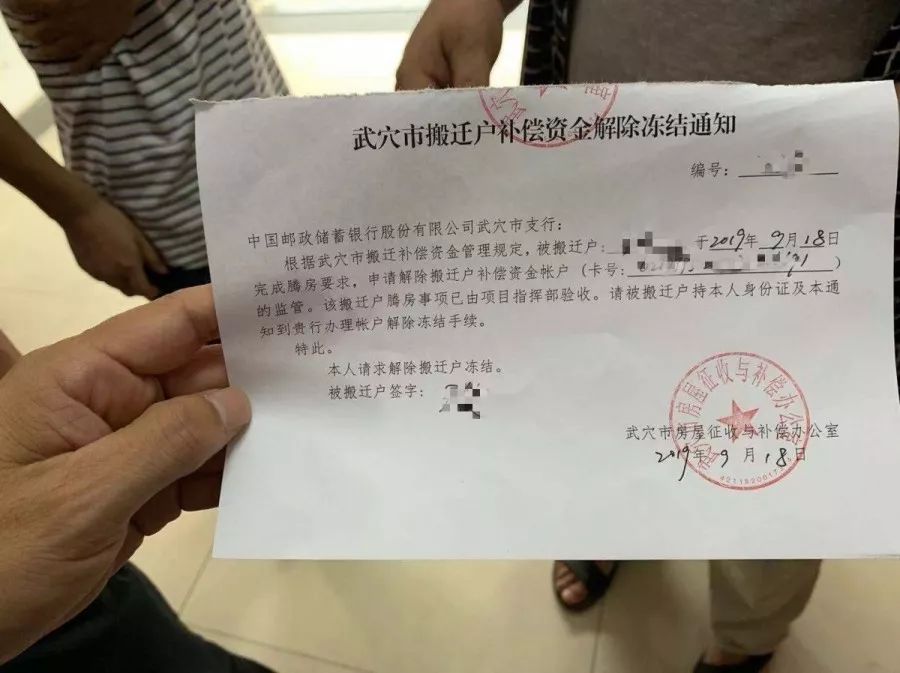 武穴市搬迁户补偿资金解除冻结通知
编号:
中国邮政储蓄银行股份有限公司武穴市支行:
根据武穴市搬迁补偿资金管理规定,被搬迁户: 于2019年 9月18日
完成腾房要求,申请解除搬迁户补偿资金帐户(卡号: )
的监管。该搬迁户腾房事项已由项目指挥部验收。请被搬迁户持本人身份证及本通
知到贵行办理帐户解除冻结手续。
特此。
本人请求解除搬迁户冻结。
被搬迁户签字:
武穴市房屋征收与补偿办公室
2019年 9月18日
房屋征收与补偿办公室